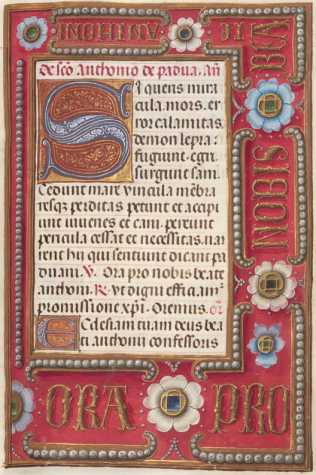 De sco Anthonio de padua. an̄
Si quens mira
cula. mors. er
ror calamitas
demon lepra
fugiunt. egri
surgunt sani.
Cedunt mare vincula mēbra
resqꝫ perditas petunt et accipi
unt iuvenes et cani. pereunt
pericula cessat et necessitas. nar
rent hij qui sentiunt dicant pa
duani. V. Ora pro nobis beate
anthoni. R. Vt digni effici am᷑
promissione xpī. Oremus. or̄
Ecclesiam tuam deus bea
ti anthonii confessoris
ORA
PRO
NOBIS
BEA
TE
ANTHONI